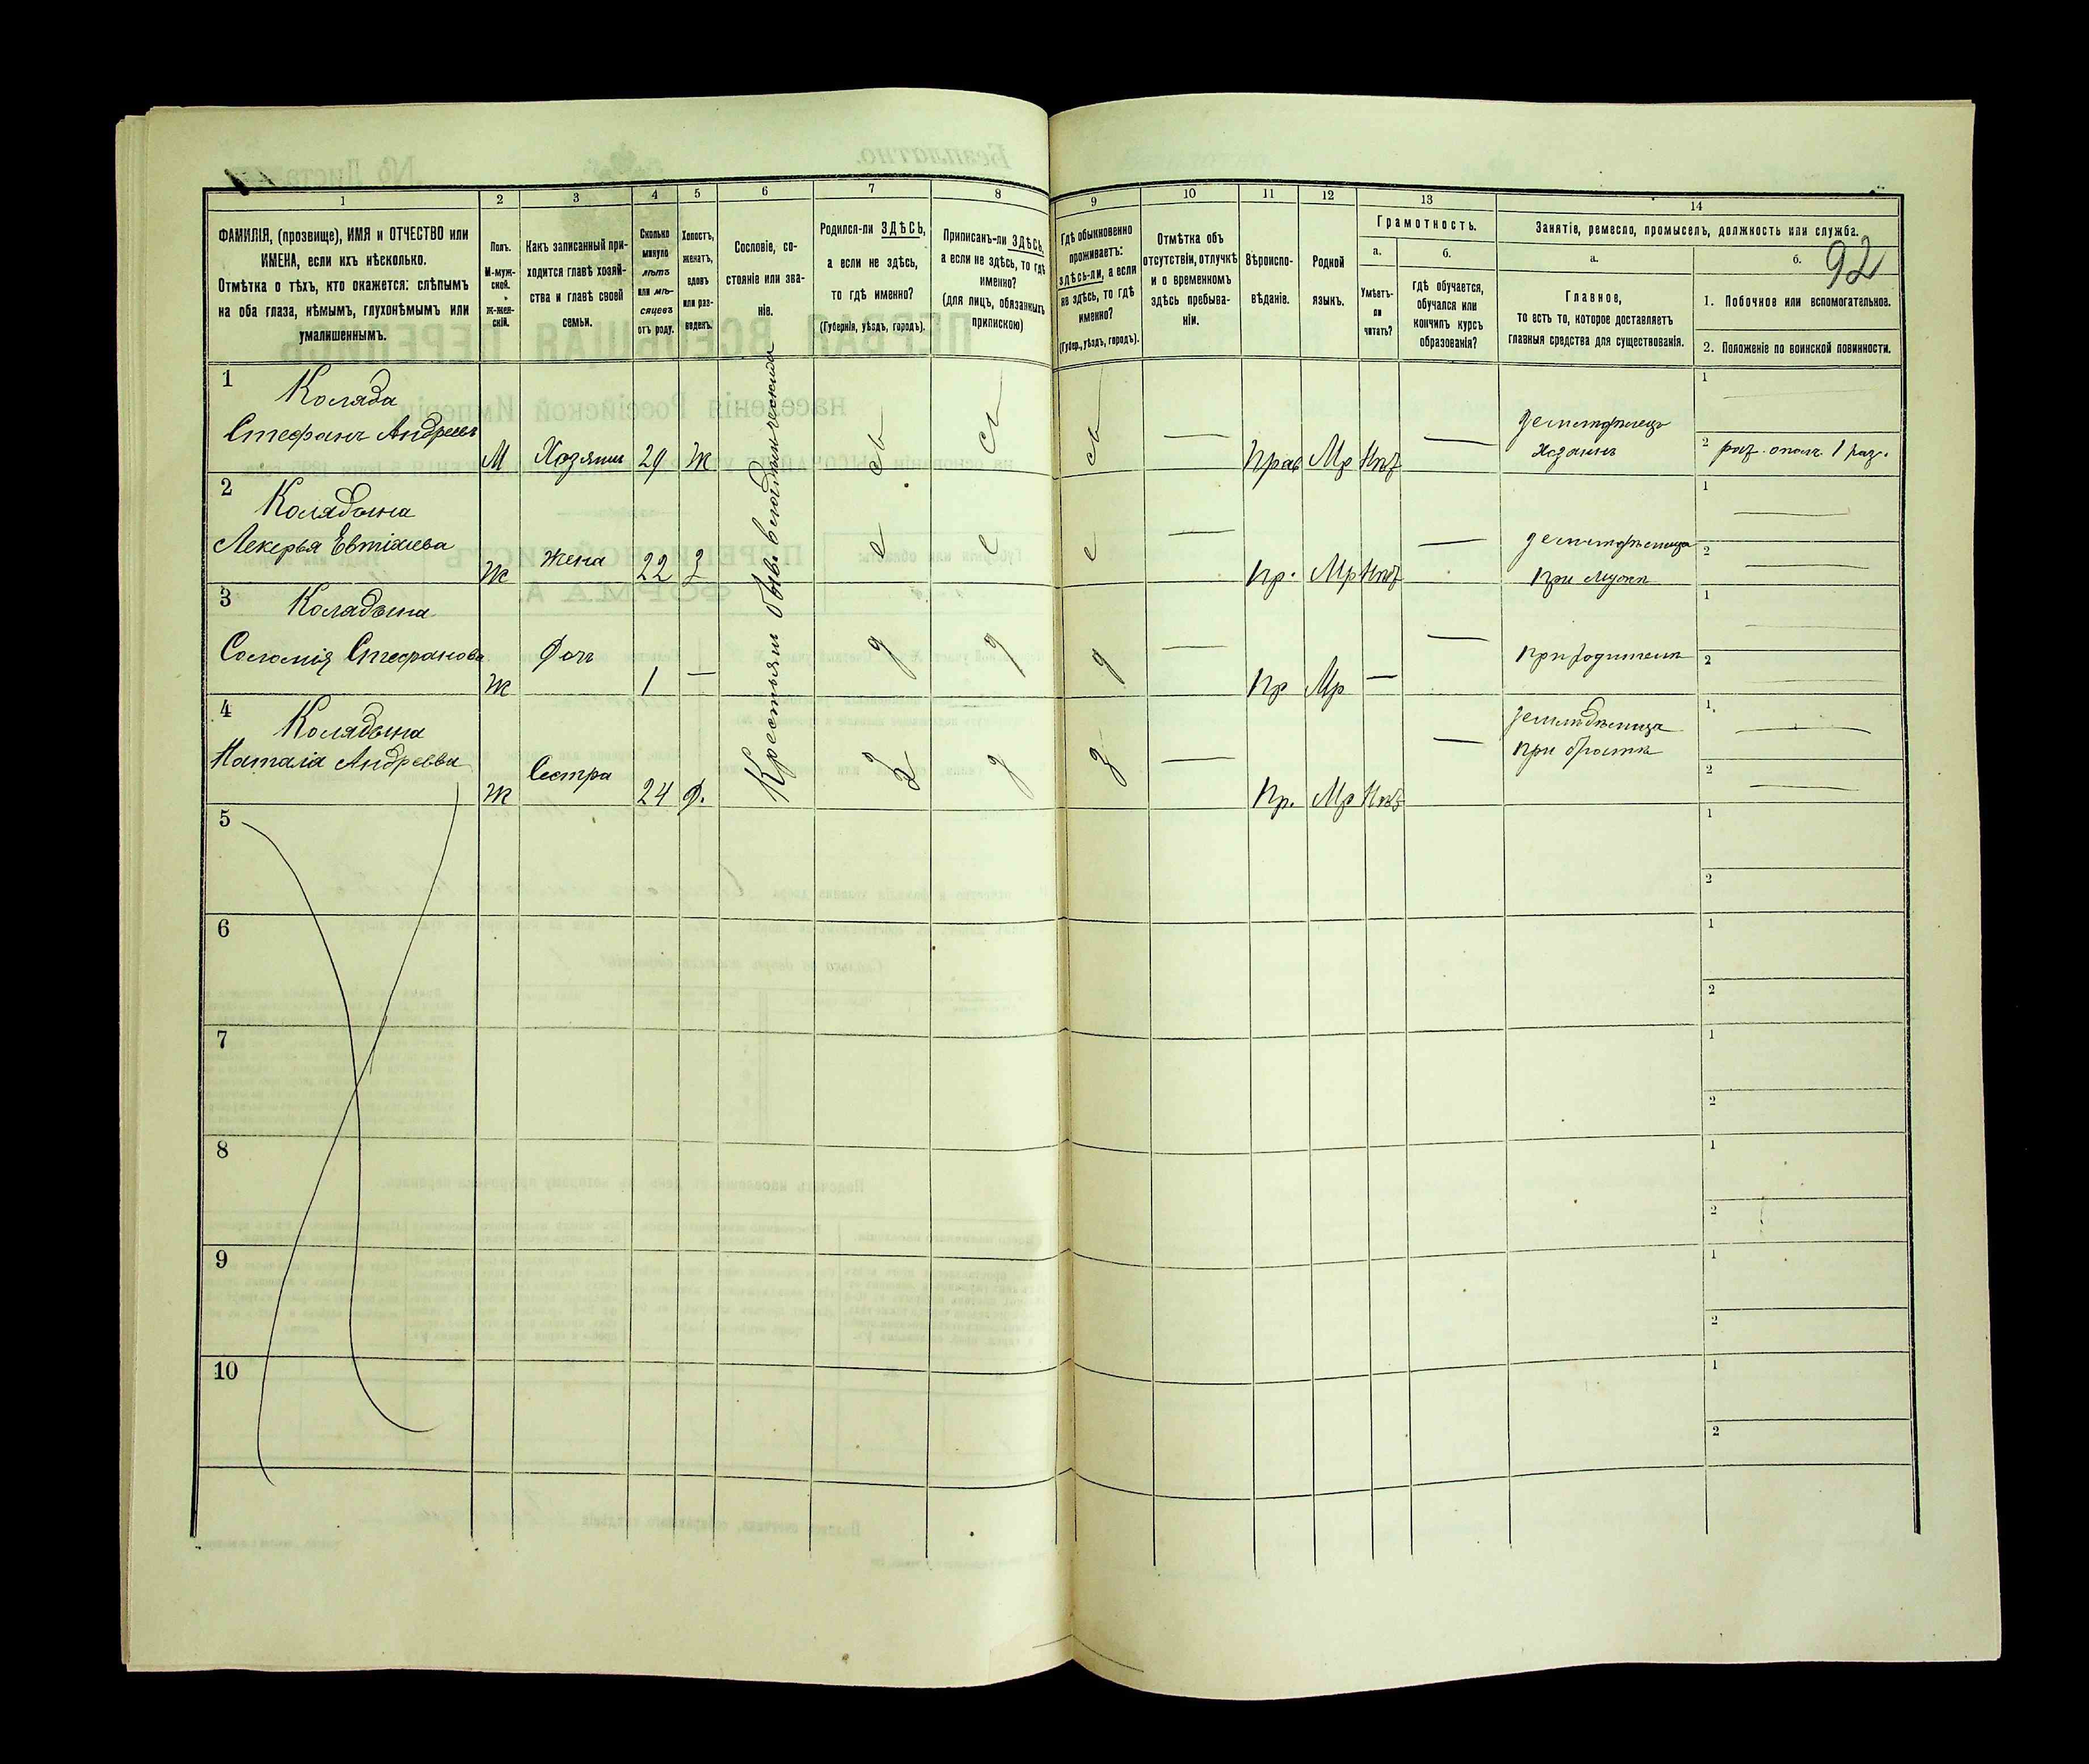 1 2 3 4 5 6 7 8 9 10 11 12 13 14
ФАМИЛІЯ, (прозвище), ИМЯ и ОТЧЕСТВО или
ИМЕНА, если ихъ нѣсколько.
Отмѣтка о тѣхъ, кто окажется: слѣпымъ
на оба глаза, нѣмымъ, глухонѣмымъ или
умалишеннымъ.
Полъ.
М-муж-
ской.
ж-жен-
скій.
Какъ записанный при-
ходится главѣ хозяй-
ства и главѣ своей
семьи.
Сколько
минуло
лѣтъ
или мѣ-
сяцевъ
отъ роду.
Холостъ,
женатъ,
вдовъ
или раз-
веденъ.
Сословіе, со-
стояніе или зва-
ніе.
Родился-ли ЗДѢСЬ,
а если не здѣсь,
то гдѣ именно?
(Губернія, уѣздъ, городъ).
Приписанъ-ли ЗДѢСЬ,
а если не здѣсь, то гдѣ
именно?
(для лицъ, обязанныхъ
припискою)
Гдѣ обыкновенно
проживаетъ:
здѣсь-ли, а если
не здѣсь, то гдѣ
именно?
(Губер., уѣздъ, городъ).
Отмѣтка объ
отсутствіи, отлучкѣ
и о временномъ
здѣсь пребыва-
ніи.
Вѣроиспо-
вѣданіе.
Родной
языкъ.
Грамотность.
а.
Умѣетъ-
ли
читать?
б.
гдѣ обучается,
обучался или
кончилъ курсъ
образованія?
Занятіе, ремесло, промыселъ, должность или служба.
а.
Главное,
то есть то, которое доставляетъ
главныя средства для существованія.
б.
92
1. Побочное или вспомогательное.
2. Положеніе по воинской повинности.
Крестьяни бывш владѣльческій
1
Коляда
Стефанъ Андреевъ
М Хозяинъ 29 Ж
Прав Мр Нѣт
земледѣлецъ
хозяинъ
1
2 рат. ополч. 1 раз.
2
Колядына
Лекерья Евтіхіева
Ж Жена 22 З
Пр. Мр Нѣт
земледѣлица
при мужѣ
1
2
3
Колядына
Соломія Стефанова
Ж Доч 1 —
Пр Мр —
при родителѣ
1
2
4
Колядына
Наталія Андреева
Ж Сестра 24 Д.
Пр. Мр Нѣт
земледѣлица
при братѣ
1.
2
5
1
2
6
1
2
7
1
2
8
1
2
9
1
2
10
1
2